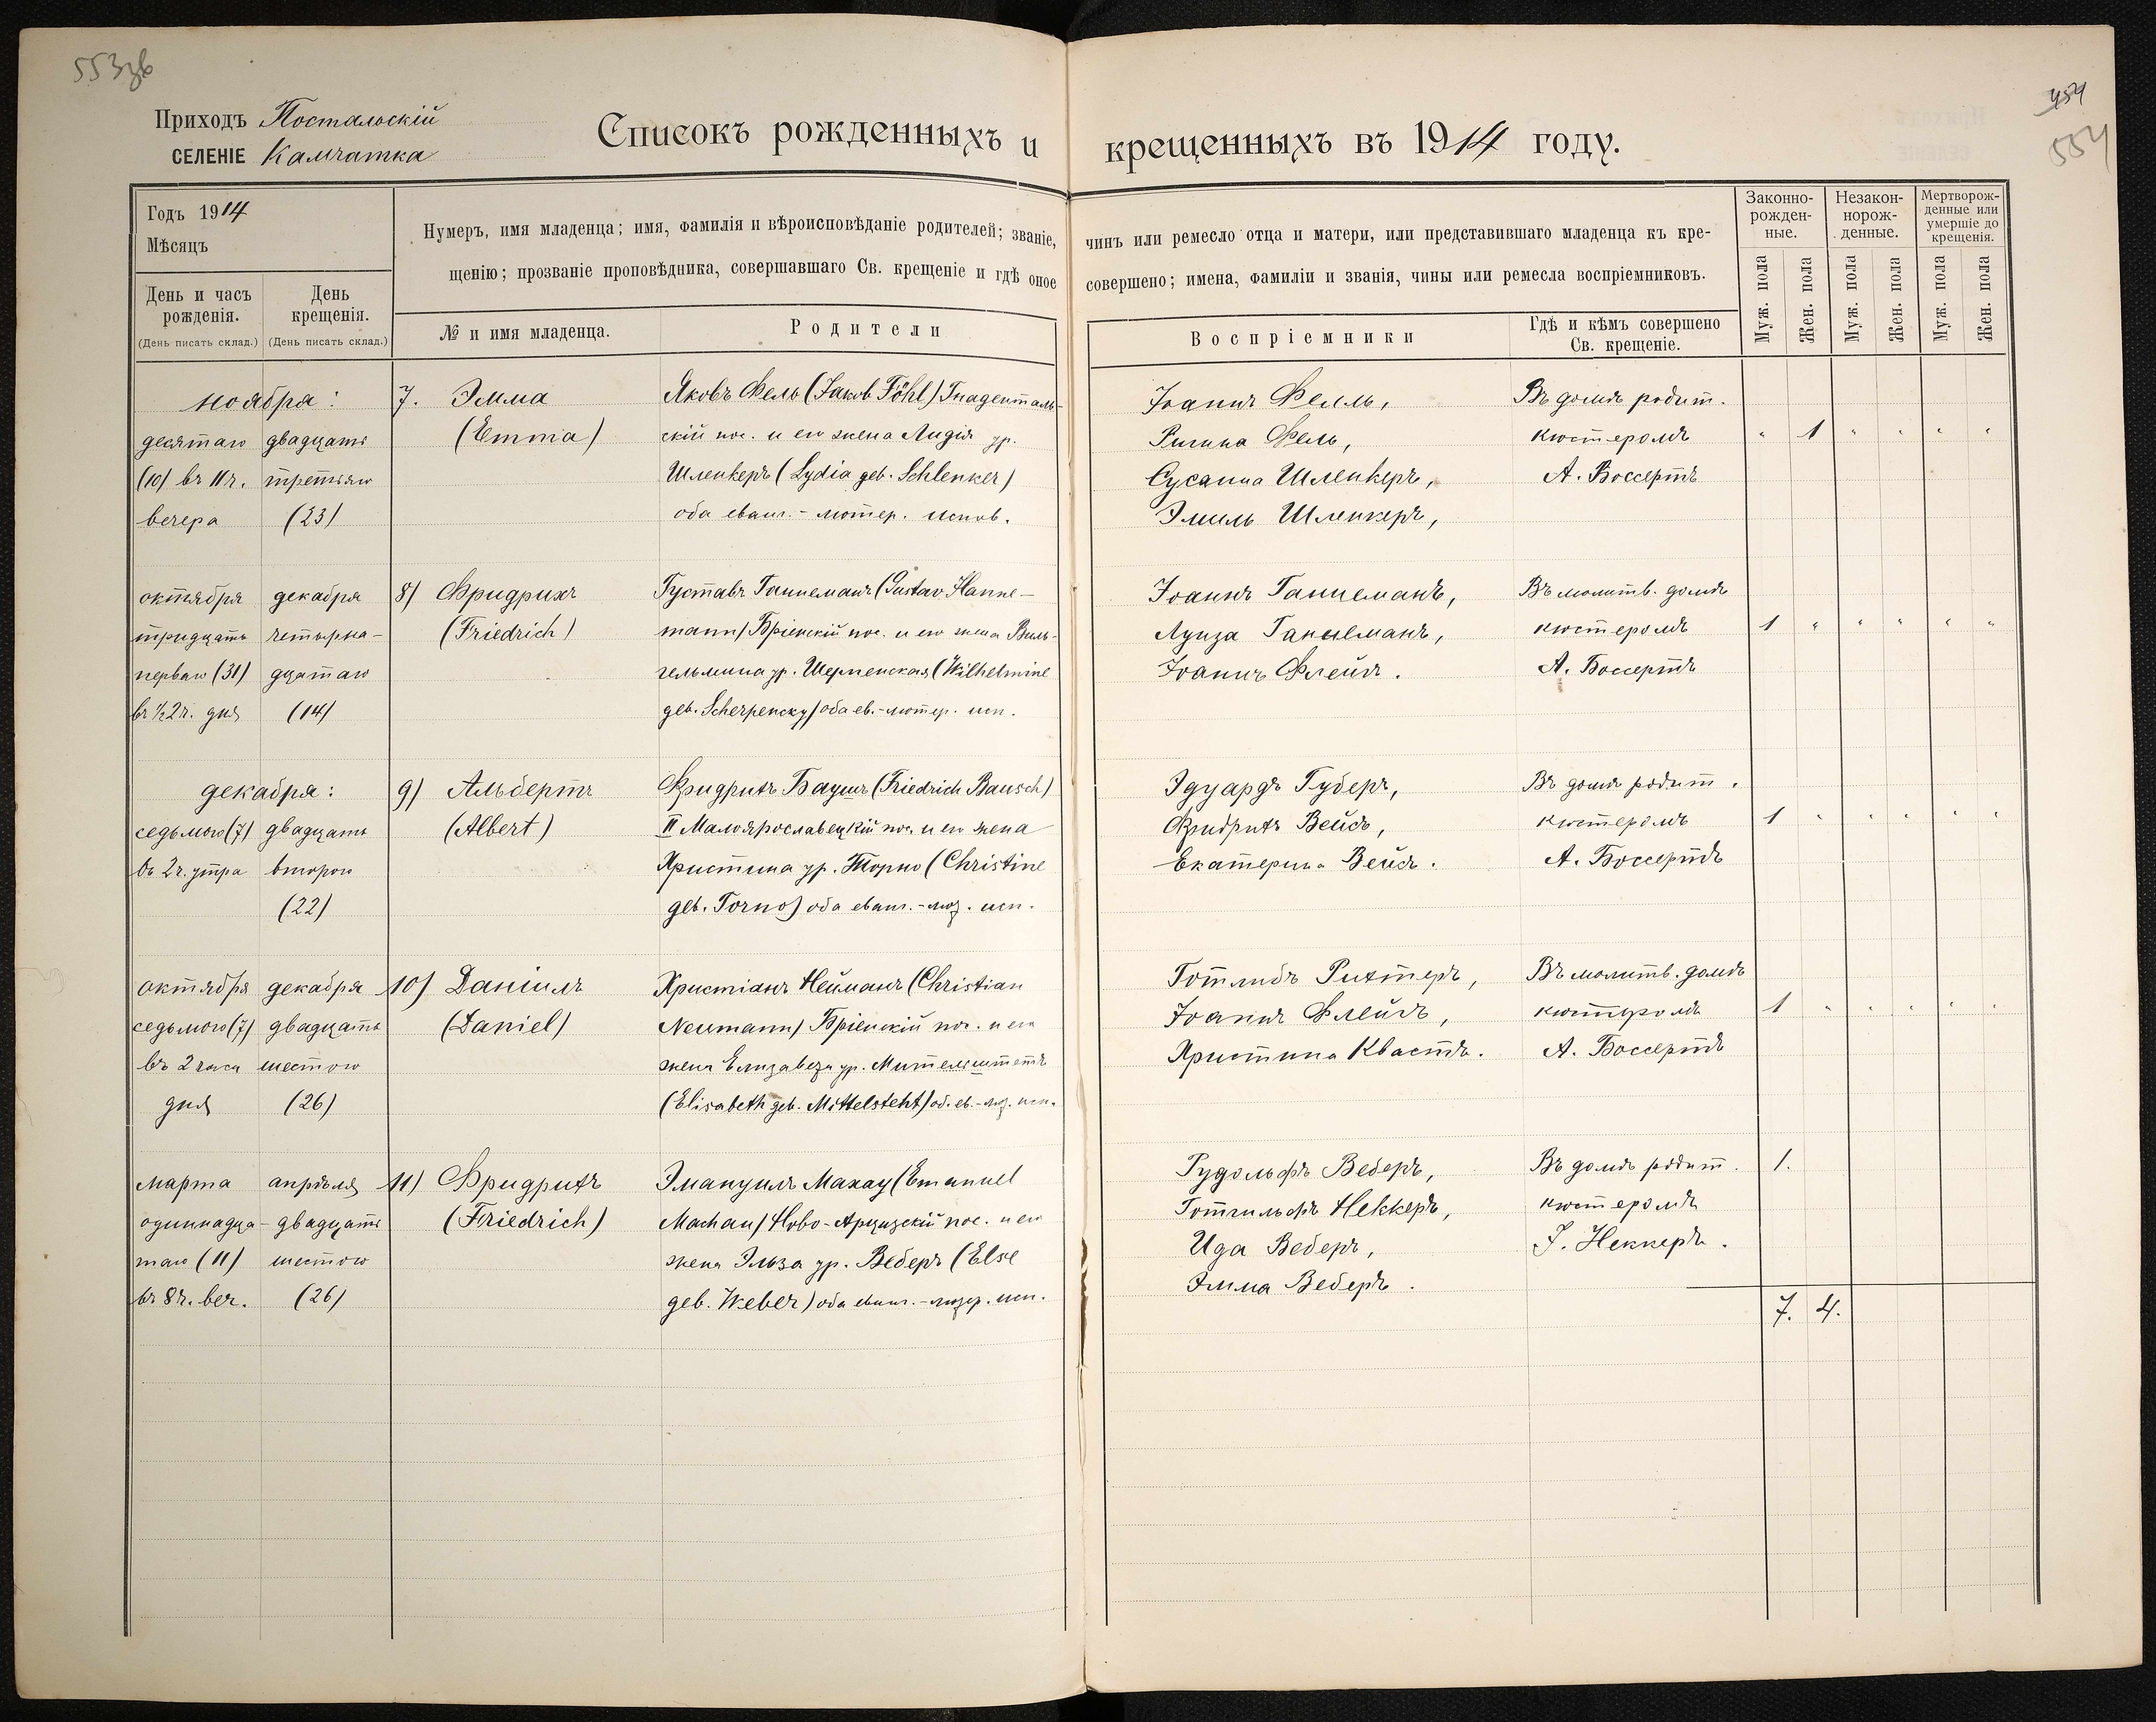 553зв
Приходъ Постальскій
СЕЛЕНІЕ Камчатка
Списокъ рожденныхъ и крещенныхъ въ 1914 году.
454
554
Годъ 1914
Мѣсяцъ
День и часъ рожденія.
(День писать склад.)
День крещенія.
(День писать склад.)
Нумеръ, имя младенца; имя, фамилія и вѣроисповѣданіе родителей; званіе, чинъ или ремесло отца и матери, или представившаго младенца къ кре-
щенію; прозваніе проповѣдника, совершавшаго Св. крещеніе и гдѣ оное совершено; имена, фамиліи и званія, чины или ремесла воспріемниковъ.
№ и имя младенца.
Родители
Воспріемники
Гдѣ и кѣмъ совершено Св. крещеніе.
Законно-рожден-ные.
Незакон-норож-денные.
Мертворож-денные или умершіе до крещенія.
Муж. пола
Жен. пола
Муж. пола
Жен. пола
Муж. пола
Жен. пола
ноября: 7. Эмма Яковъ Фель (Jakob Föhl) Гнаденталь- Іоаннъ Фелль, Въ домѣ родит.
десятаго двадцать (Emma) скій пос. и его жена Лидія ур. Регина Фель, кюстеромъ " 1 " " " "
(10) въ 11 ч. третьяго Шленкеръ (Lydia geb. Schlenker) Сусанна Шленкеръ, А. Боссертъ
вечера (23) оба еванг.-лютер. испов. Эмиль Шленкеръ,
октября декабря 8) Фридрихъ Густавъ Ганнеманъ (Gustav Hanne- Іоаннъ Ганнеманъ, Въ молитв. домѣ
тридцать четырна- (Friedrich) mann) Бріенскій пос. и его жена Виль- Луиза Ганнеманъ, кюстеромъ 1 " " " " "
перваго (31) дцатаго гельмина ур. Шерпенская (Wilhelmine Іоаннъ Флейсъ. А. Боссертъ
въ ½2 ч. дня (14) geb. Scherpensky) оба ев.-лютер. исп.
декабря: 9) Альбертъ Фридрихъ Баушъ (Friedrich Bausch) Эдуардъ Губеръ, Въ домѣ родит.
седьмого (7) двадцать (Albert) II Малоярославецкій пос. и его жена Фридрихъ Вейсъ, кюстеромъ 1 " " " " "
въ 2 ч. утра второго Христина ур. Торно (Christine Екатерина Вейсъ. А. Боссертъ
(22) geb. Torno) оба еванг.-лют. исп.
октября декабря 10) Даніилъ Христіанъ Нейманъ (Christian Готлибъ Рихтеръ, Въ молитв. домѣ
седьмого (7) двадцать (Daniel) Neumann) Бріенскій пос. и его Іоаннъ Флейсъ, кюстеромъ 1 " " " " "
въ 2 часа шестого жена Елизавета ур. Мительштетъ Христина Квастъ. А. Боссертъ
дня (26) (Elisabeth geb. Mittelsteht) об. ев.-лют. исп.
марта апрѣля 11) Фридрихъ Эмануилъ Махау (Emanuel Рудольфъ Веберъ, Въ домѣ родит. 1.
одиннадца- двадцать (Friedrich) Machau) Ново-Арцизскій пос. и его Готгильфъ Неккеръ, кюстеромъ
таго (11) шестого жена Эльза ур. Веберъ (Else Ида Веберъ, І. Неккеръ.
въ 8 ч. веч. (26) geb. Weber) оба еванг.-лютер. исп. Эмма Веберъ.
7. 4.